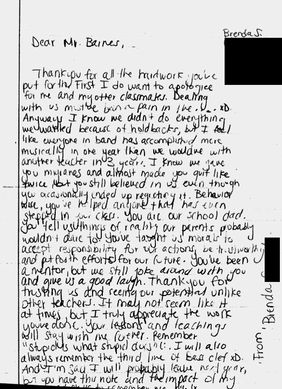 Brenda S.
Dear Mr. Barnes,
Thankyou for all the hardwork you've
put forth! First I do want to apologize
for me and my other classmates. Dealing
with us must be a pain in the
Anyways I know we didn't do everything
we wanted because of holdbacks, but I feel
like everyone in band has accomplished more
musically in one year than we would've with
another teacher in 3 years. I know we gave
you migranes and almost made you quit like
twice. But you still believed in us even though
you occasionally ended up regretting it. Behavior
wise, you've helped anyone that has even
stepped in our class. You are our school dad.
You tell us things of reality our parents probably
wouldn't dare to. You've taught us morals to
accept responsibility for our actions, be trustworthy
and put forth efforts for our future. You've been
a mentor, but we still joke around with you
and give us a good laugh. Thank you for
trusting us and seeing our potential unlike
other teachers. It may not seem like it
at times, but I truly appreciate the work
you've done. Your lessons and teaching
will stay with me forever. Remember
"Stupid is what stupid does". I will also
always remember the third line of bass clef xD.
And I'm say I will probably leave next year,
but you have this note and the impact of my
From: Brenda